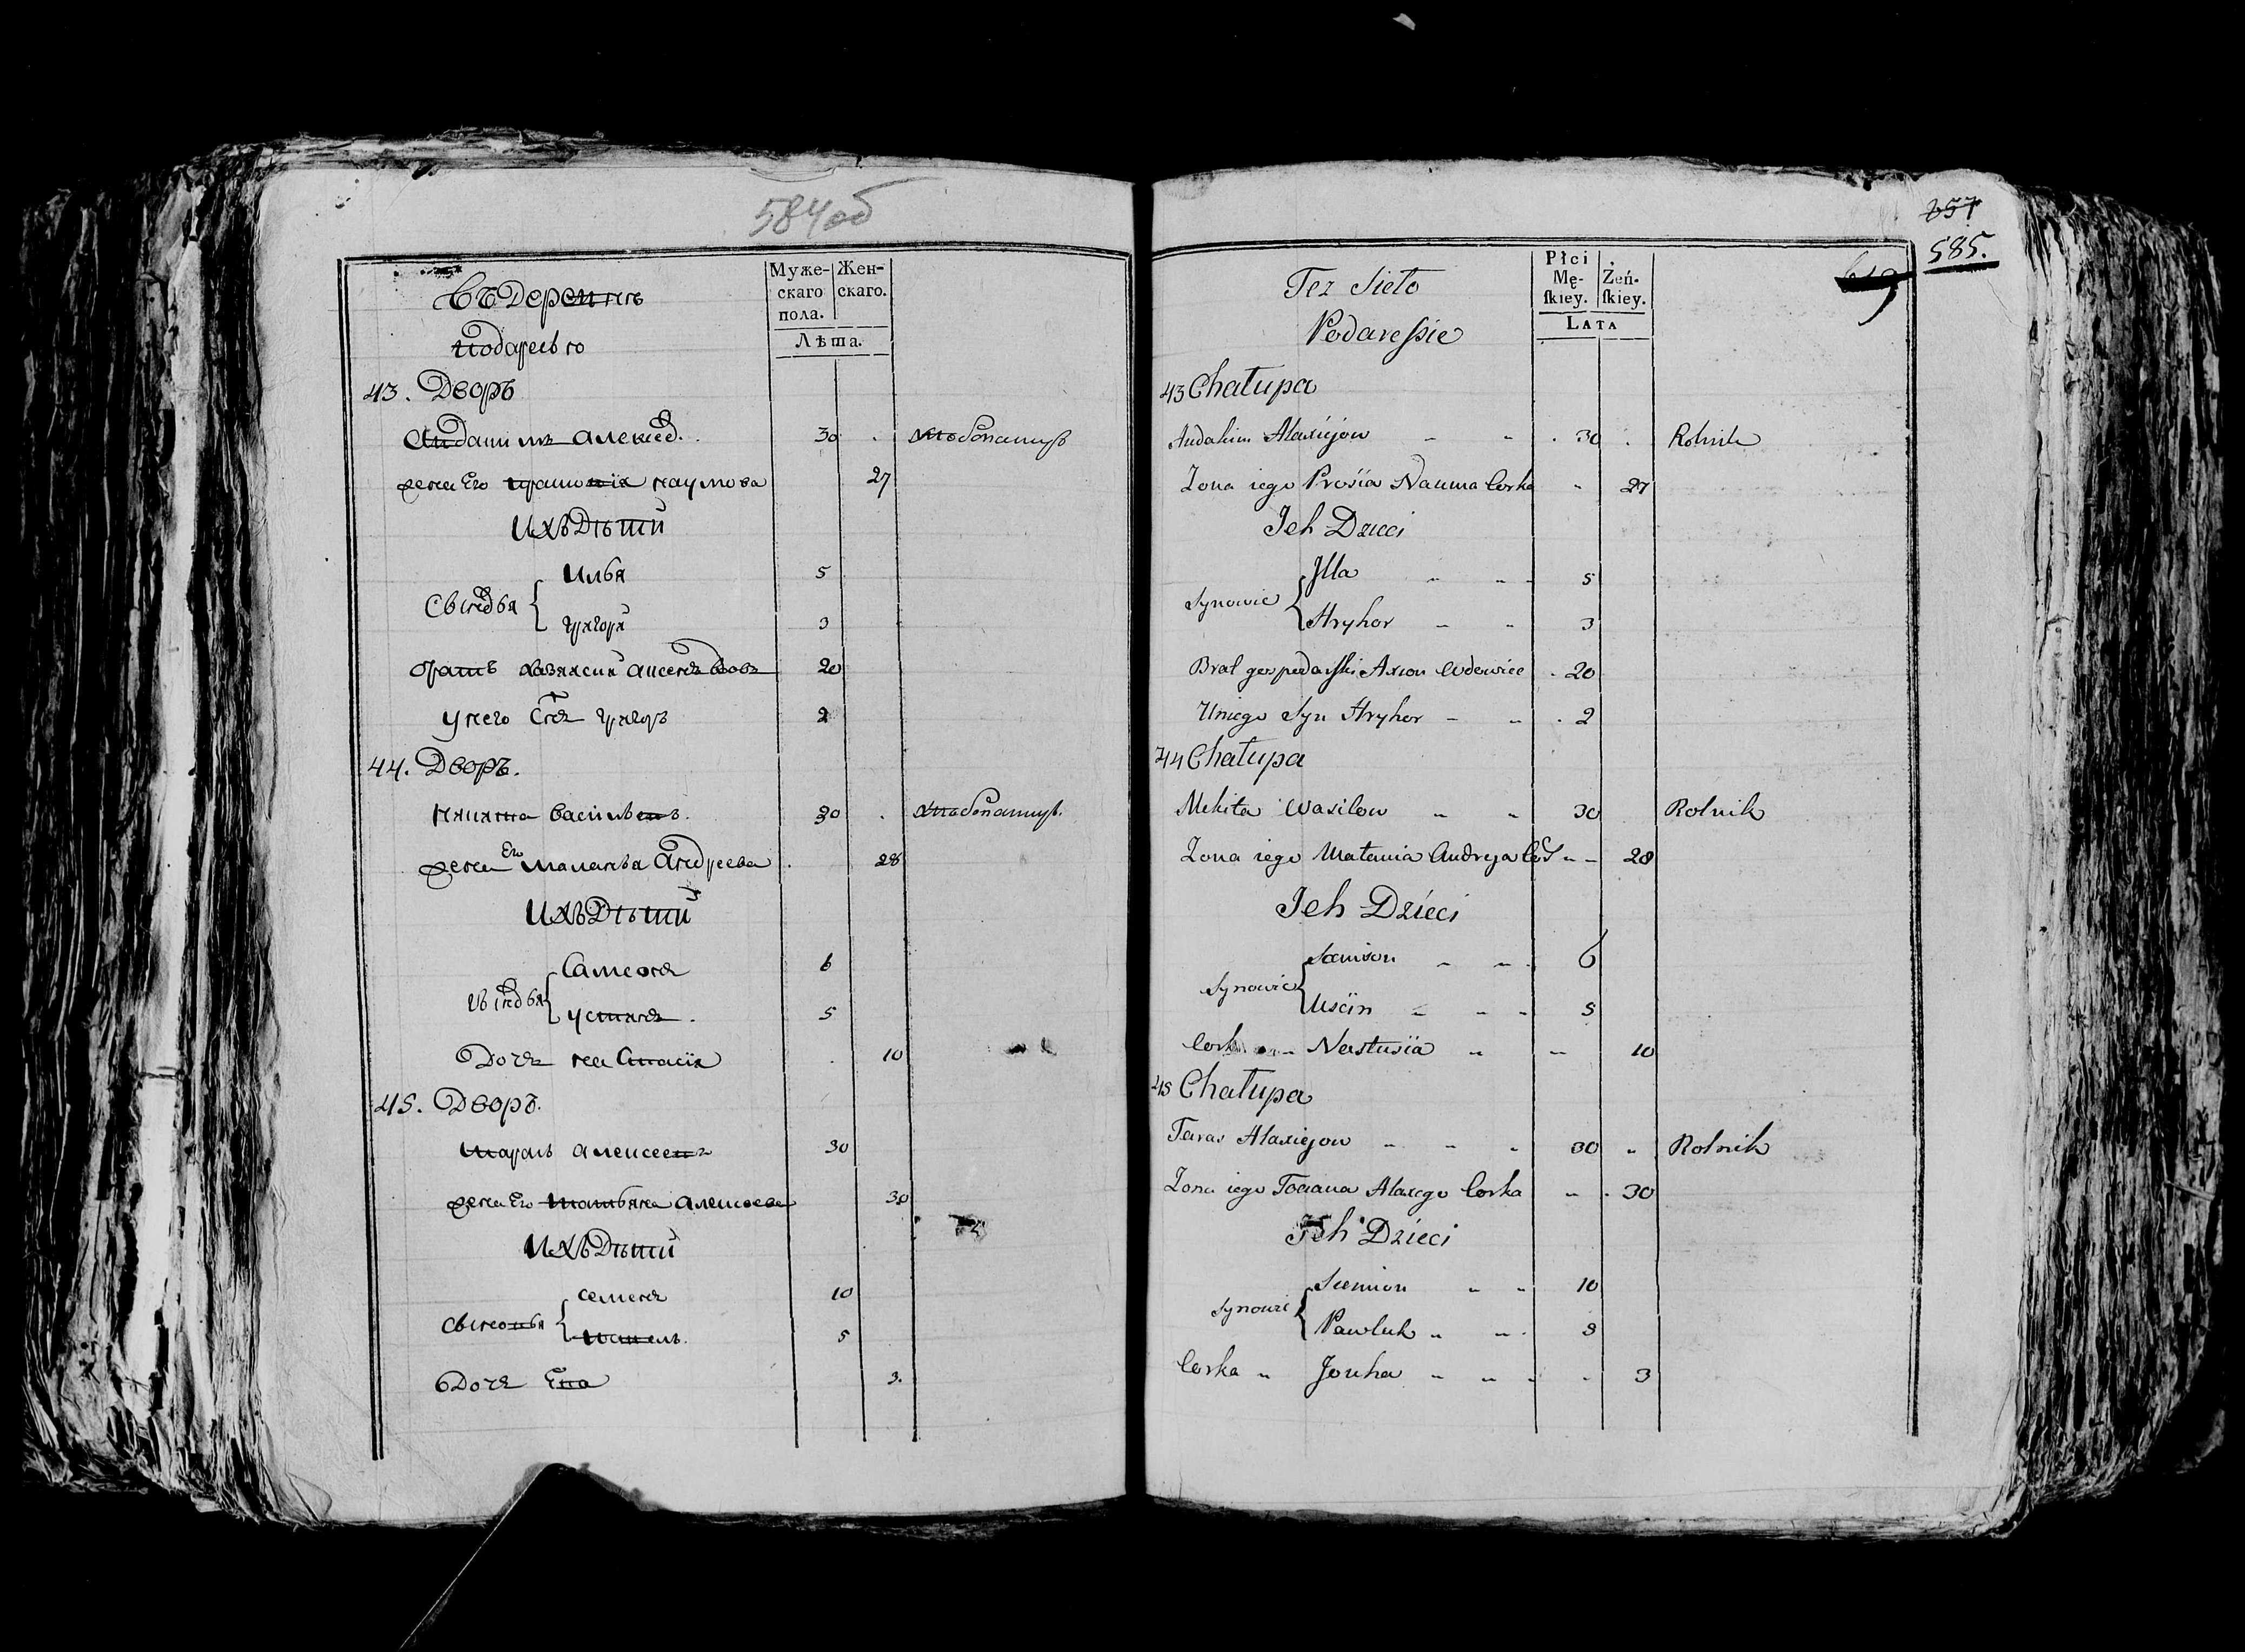 584об
Въ деревнѣ
Подаресью
Муже-
скаго
пола.
Жен-
скаго.
Лѣта.
43. Дворъ
Авдакимъ Алексеев. 30 Хлебопашецъ
жена Его Прасковія Наумова 27
Ихъ Дѣти
Сыновья
Илья 5
Григорій 3
братъ хазяискій 20
У него Сынъ Григоръ 2
44. Дворъ.
Никита Васильевъ. 30 Хлебопашецъ.
жена Его Маланья Андреева 28
Ихъ Дѣти
Сыновья
Самсонъ 6
Устинъ. 5
Дочь Настасія 10
45. Дворъ.
Тарасъ Алексеевъ 30
жена Его Татьяна Алексеева 30
Ихъ Дѣти
Сыновья
Семенъ 10
Павелъ. 5
Дочь 3.
257
585.
619
Też Sieło
Podaressie
Płci
Mę-
skiey.
Żeń-
skiey.
Lata
43 Chałupa
Audakim Alaxiejow 30 Rolnik
Zona iego Prosia Nauma Corka 27
Ich Dzieci
Synowie
Jlla 5
Hryhor 3
Brat gospodarski Axion Wdowiec 20
U niego Syn Hryhor 2
44 Chałupa
Mikita Wasilow 30 Rolnik
Zona iego Małania Andreja Cor 28
Ich Dzieci
Synowie
Samson 6
Uscin 5
Corka Nastusia 10
45 Chałupa
Taras Alaxiejow 30 Rolnik
Zona iego Tociana Alaxego Corka 30
Ich Dzieci
Synowie
Siemion 10
Pawluk 5
Corka Jouha 3